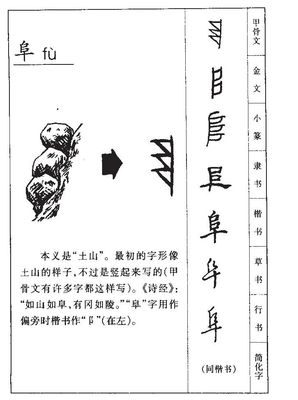 阜 fù
本义是“土山”。最初的字形像
土山的样子,不过是竖起来写的(甲
骨文有许多字都这样写)。《诗经》:
“如山如阜,有冈如陵。”“阜”字用作
偏旁时楷书作“阝”(在左)。
甲骨文
金文
小篆
隶书
楷书
草书
行书
简化字
阜
阜
阜
阜
阜
阜
阜
(同楷书)